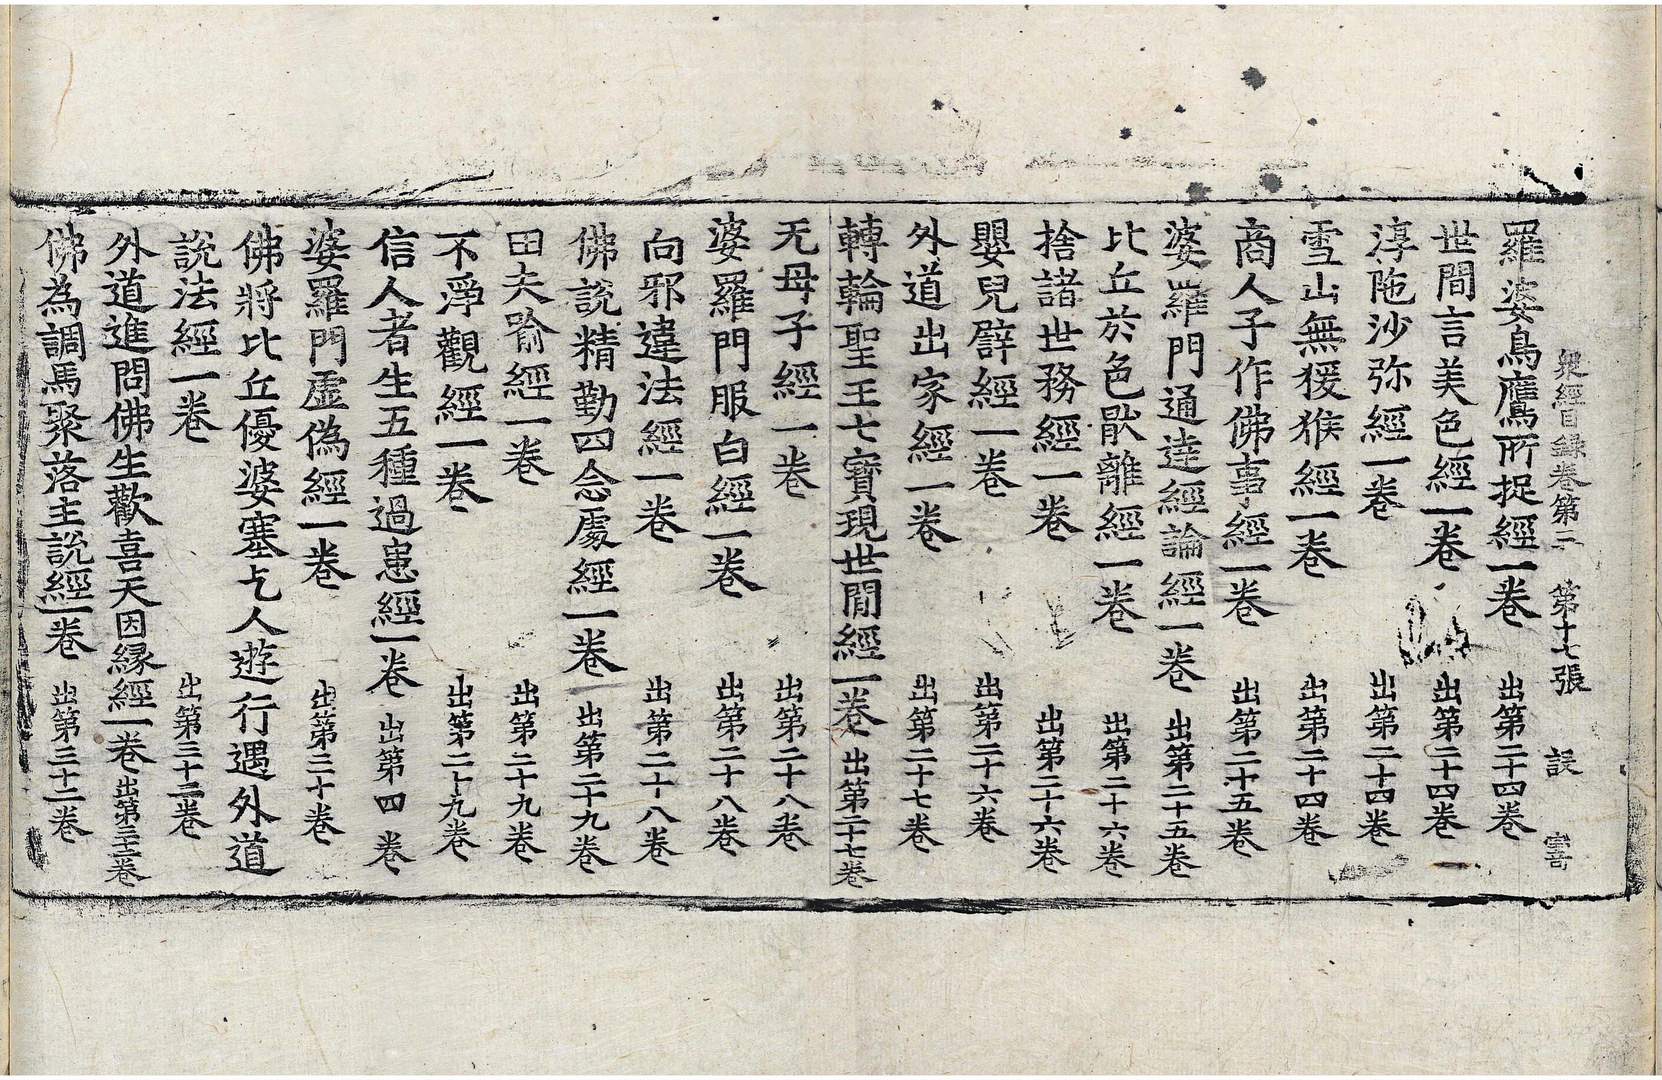 衆經目録卷第二 第十七張 設
羅婆鳥鷹所捉經一卷 出第二十四卷
世間言美色經一卷 出第二十四卷
淳陁沙弥經一卷 出第二十四卷
雪山無猨猴經一卷 出第二十四卷
商人子作佛事經一卷 出第二十五卷
婆羅門通達經論經一卷 出第二十五卷
比丘於色猒離經一卷 出第二十六卷
捨諸世務經一卷 出第二十六卷
嬰兒譬經一卷 出第二十六卷
外道出家經一卷 出第二十七卷
轉輪聖王七寶現世間經一卷 出第二十七卷
无母子經一卷 出第二十八卷
婆羅門服白經一卷 出第二十八卷
向邪違法經一卷 出第二十八卷
佛說精勤四念處經一卷 出第二十九卷
田夫喻經一卷 出第二十九卷
不淨觀經一卷 出第二十九卷
信人者生五種過患經一卷 出第四卷
婆羅門虛偽經一卷 出第三十卷
佛將比丘優婆塞乞人遊行遇外道
說法經一卷 出第三十二卷
外道進問佛生歡喜天因緣經一卷 出第三十二卷
佛為調馬聚落主說經一卷 出第三十二卷